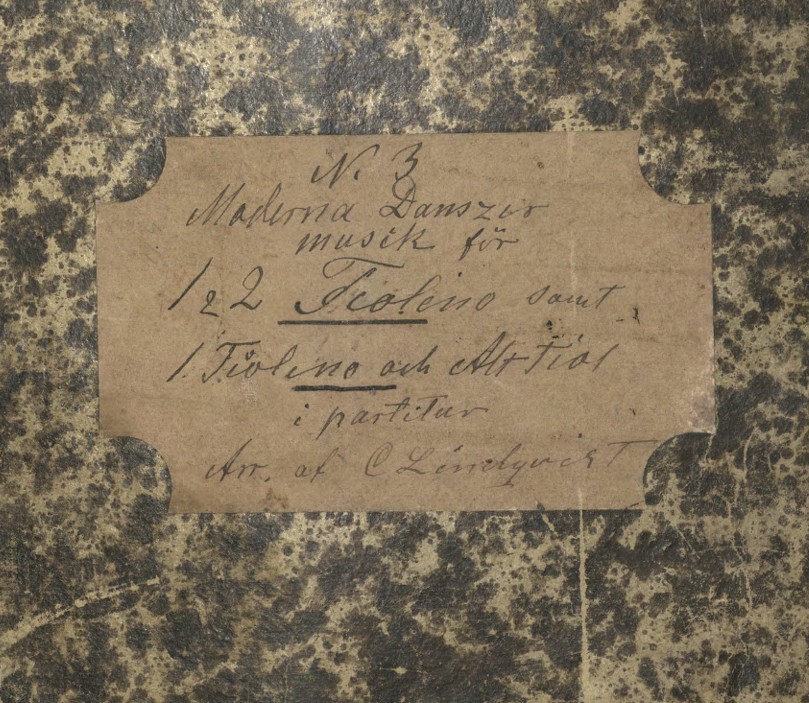 N. 3
Moderna Danszer
musik för
1 & 2 Fioleno samt
1. Fioleno och Alt Fiol
i partitur
Arr. af C Lindqvist